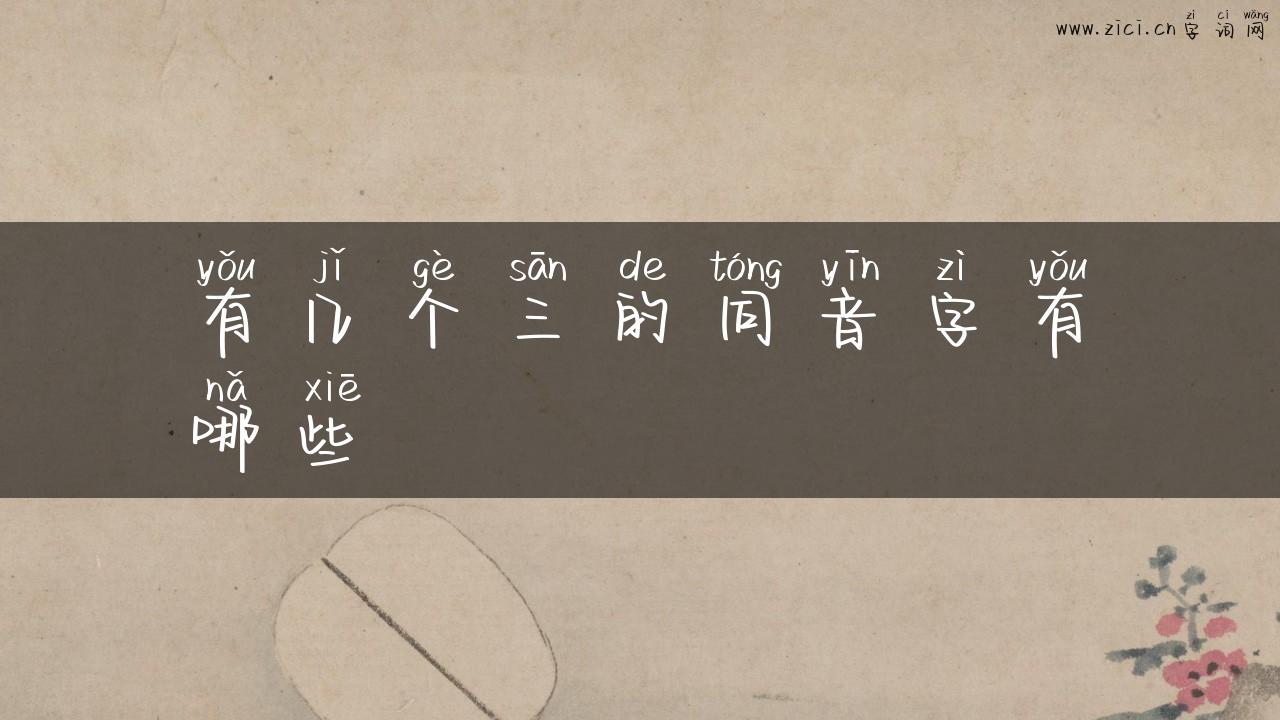 zì cí wǎng
www.zici.cn 字 词 网
yǒu jǐ gè sān de tóng yīn zì yǒu
有 几 个 三 的 同 音 字 有
nǎ xiē
哪 些